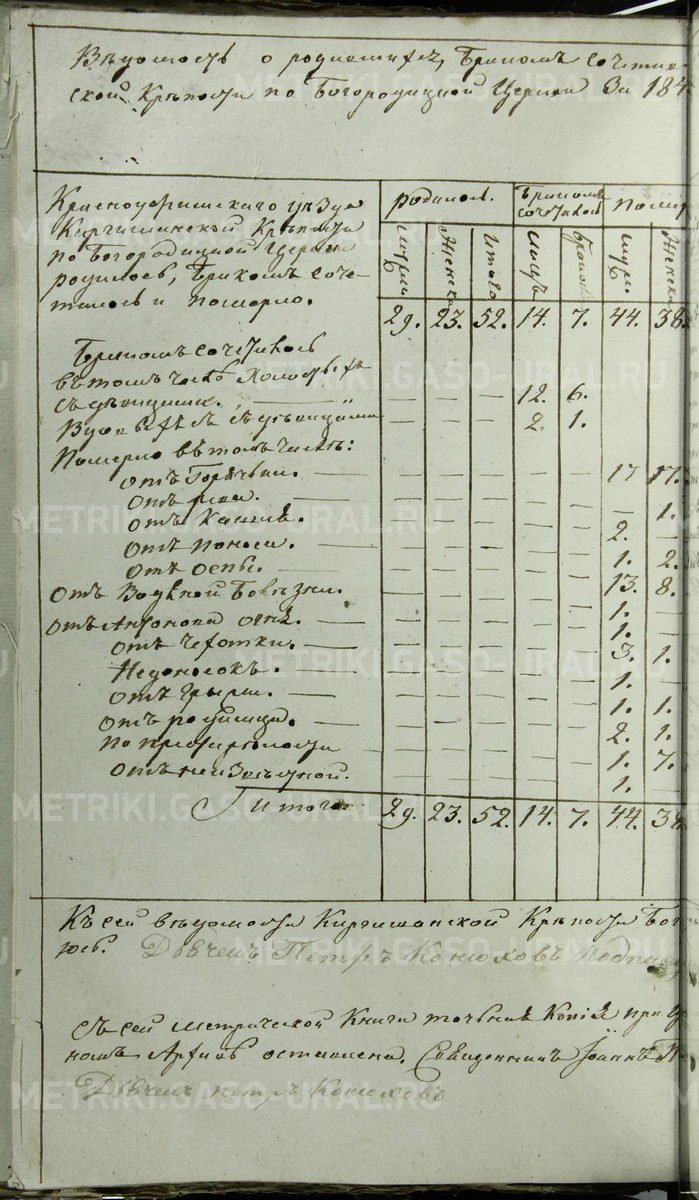 Вѣдомость о родившихся, бракомъ сочетав
ской Крѣпости по Богородицкой Церкви За 184
Красноуфимскаго уѣзда
Киргишанской Крѣпости
по Богородицкой Церкви
родилось, бракомъ соче-
талось и померло.
родилось. бракомъ сочеталось помер
мужеска женска итого лицъ браковъ муже. женска
29. 23. 52. 14. 7. 44. 38.
Бракомъ сочеталось
въ томъ числѣ холостыхъ
съ дѣвицами. — — — 12. 6.
Вдовыхъ съ дѣвицами — — — 2. 1.
Померло въ томъ числѣ:
отъ Горячки. — — — — — — 17 17.
отъ — — — — — — 1.
отъ Кашля. — — — — — 2. —
отъ поноса. — — — — — — 1. 2.
отъ оспы. — — — — — — 13. 8.
отъ Водяной Болѣзни. — — — — — 1. —
отъ Антонова огня. — — — — — 1. —
отъ чахотки. — — — — — — 3. 1.
Недоносокъ. — — — — — 1. —
отъ грыжи. — — — — — — 1. 1.
отъ родимца. — — — — — — 2. 1.
по престарѣлости — — — — — 1. 7.
отъ неизвѣстной. — — — — — 1. —
Итого 29. 23. 52. 14. 7. 44. 38
Къ сей вѣдомости Киргишанской Крѣпости Бог
Дьячекъ Петръ Конюховъ
съ сей метрической Книги точная Копія при
номъ Архивѣ оставлена. Священникъ Іоаннъ
Дьячекъ петръ Конюховъ
METRIKI.GASO-URAL.RU